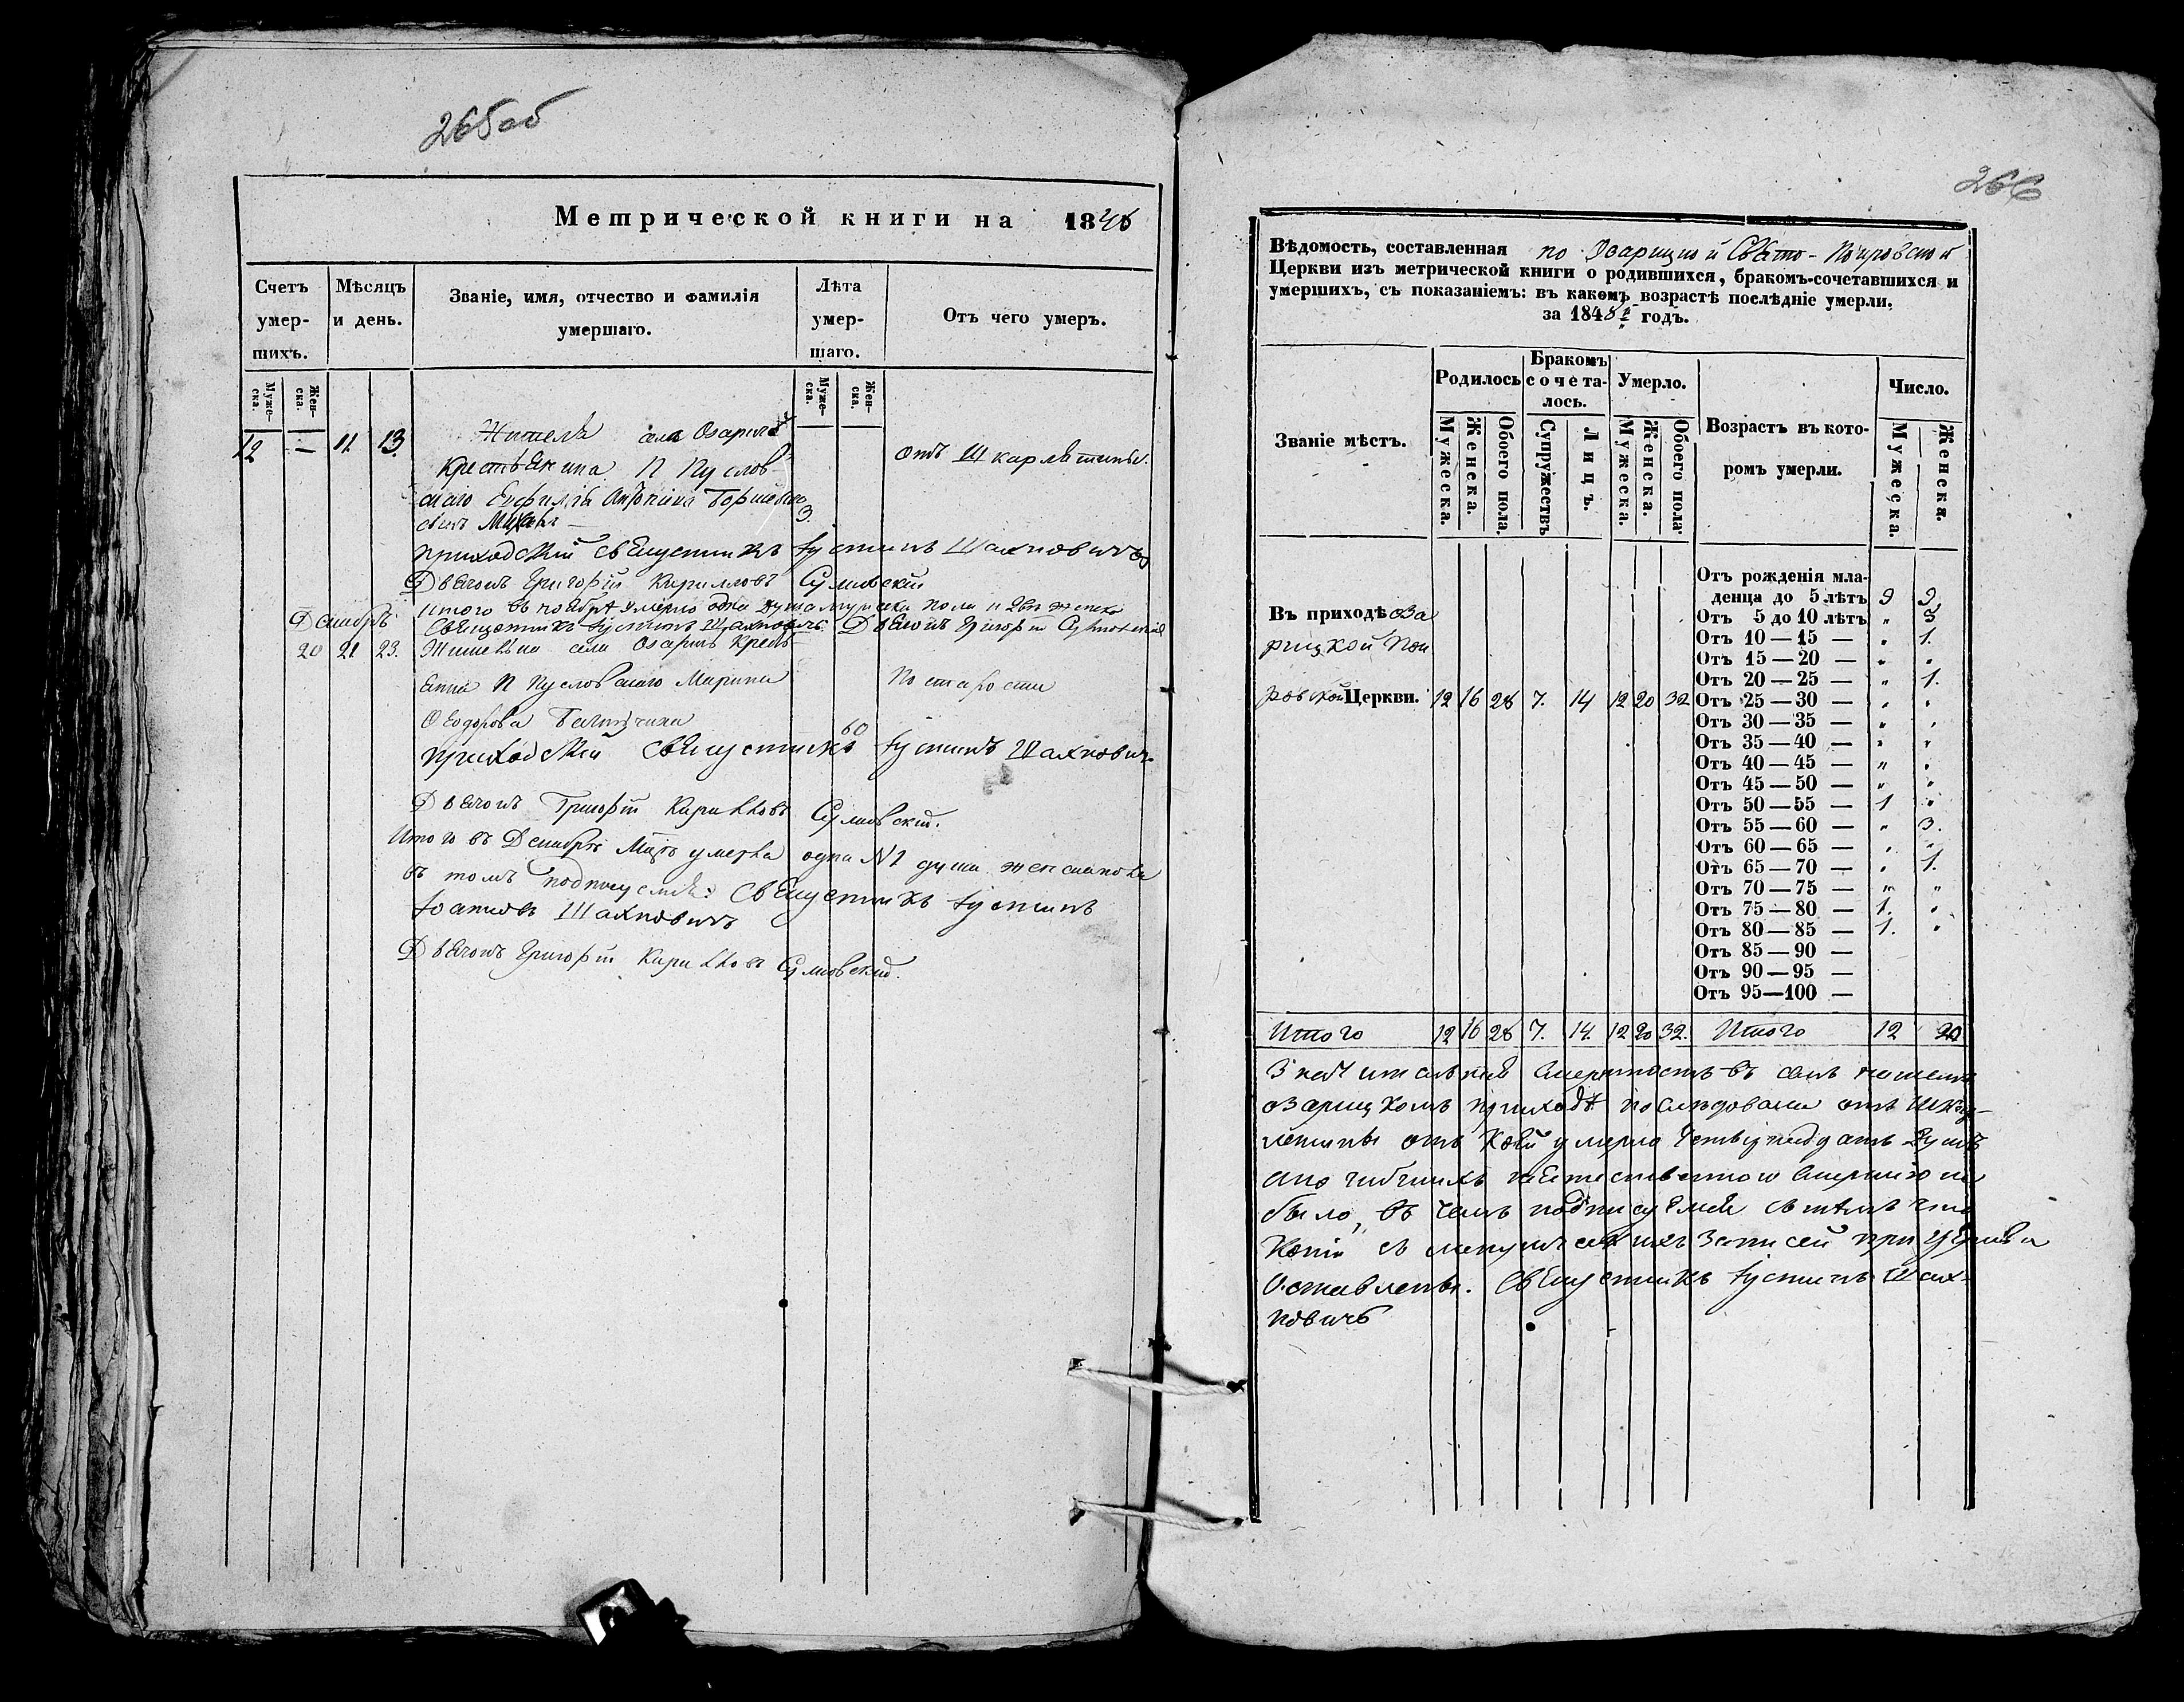 265об
Метрической книги на 1846
Счетъ умер-шихъ.
Мѣсяцъ и день.
Званіе, имя, отчество и фамилія умершаго.
Лѣта умер-шаго.
Отъ чего умеръ.
Муже-ска.
Жен-ска.
Муже-ска.
Жен-ска.
12 — 11. 13. Жителя села Озаричъ
Крестьянина П Пуслов-
скаго Антонина
сынъ 3. отъ Шкарлятины.
приходскій священникъ Іустинъ Шахновичъ
Дьячокъ Григорій Кирилловъ Сулковскій
Итого въ ноябрѣ умерло одна душа мужеска пола и две женска
Священникъ Іустинъ Шахновичъ. Дьячокъ Григорій
Декабрь
20 21 23. села Озаричъ Кресть-
П Пусловскаго Марина По старости
Ѳеодорова 60
приходскій священникъ Іустинъ Шахнович
Дьячокъ Григорій Кирилловъ
Итого въ Декабрѣ умерла одна №1 душа женска пола
въ томъ подписуемся: Священникъ Іустинъ
Іоанновъ Шахновичъ
Дьячокъ Григорій Кирилловъ
266
Вѣдомость, составленная по Озарицкой Свято-Покровской
Церкви изъ метрической книги о родившихся, бракомъ-сочетавшихся и
умершихъ, съ показаніемъ: въ какомъ возрастѣ послѣдніе умерли.
за 184 годъ.
Званіе мѣстъ.
Родилось
Бракомъ сочета-лось.
Умерло.
Возрастъ въ кото-ромъ умерли.
Число.
Мужеска.
Женска.
Обоего пола.
Супружествъ
Лицъ.
Мужеска.
Женска.
Обоего пола
Мужеска.
Женска.
Въ приходѣ Оза
рицкой Пок
ровской Церкви. 12 16 28 7. 14 12 20 32
Отъ рожденія мла-
денца до 5 лѣтъ 9 9.
Отъ 5 до 10 лѣтъ „ 5
Отъ 10—15 — „ 1.
Отъ 15—20 — „ „
Отъ 20—25 — „ 1.
Отъ 25—30 — „ „
Отъ 30—35 — „ „
Отъ 35—40 — „ „
Отъ 40—45 — „ „
Отъ 45—50 — „ „
Отъ 50—55 — 1 „
Отъ 55—60 — „ 3.
Отъ 60—65 — „ „
Отъ 65—70 — „ 1.
Отъ 70—75 — „ „
Отъ 75—80 — 1. „
Отъ 80—85 — 1. „
Отъ 85—90 —
Отъ 90—95 —
Отъ 95—100 —
Итого 12 16 28 7. 14. 12 20 32. Итого 12 20
смертность въ семъ
озарицкомъ приходѣ последовала отъ
летины отъ коей умерло душъ
смертію не
было, въ чемъ подписуемся
Копіи съ записей при церкви
оставлены. Священникъ Іустинъ Шах-
новичъ